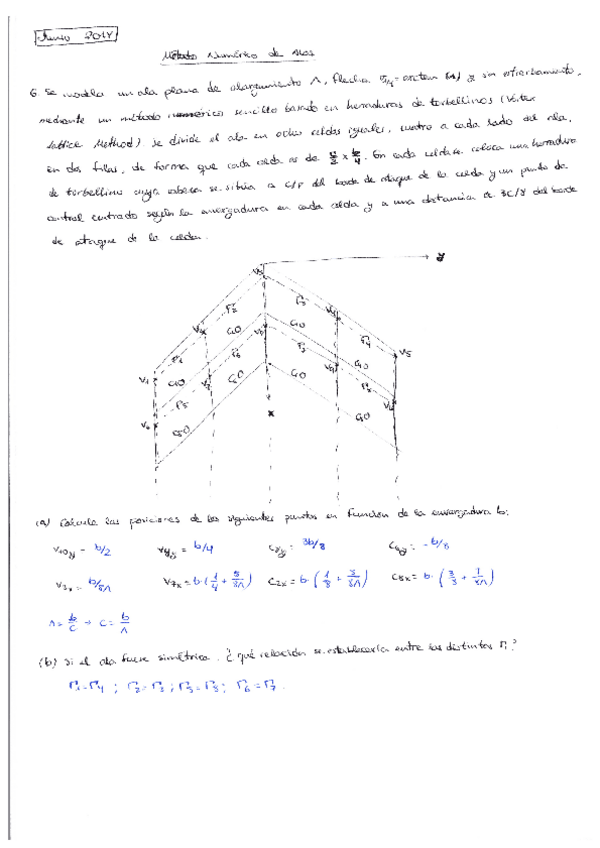 Junio 2014
Método Numérico de Alas
6. Se modela un ala plana de alargamiento Λ, flecha = arctan (1) y sin estrechamiento,
mediante un método numérico sencillo basado en herraduras de torbellinos (Vortex
Lattice Method). Se divide el ala en ocho celdas iguales, cuatro a cada lado del ala,
en dos filas, de forma que cada celda es de c/2 x b/4. En cada celda se coloca una herradura
de torbellino cuya cabeza se sitúa a c/8 del borde de ataque de la celda y un punto de
control centrado según la envergadura en cada celda y a una distancia de 3C/8 del borde
de ataque de la celda.
y
V3
Γ2 Γ3
V2 V4
GO GO
Γ1 Γ4
V8 V5
V1 GO Γ6 Γ7 GO
V7 V9
Γ5 GO GO Γ8
V6
GO x GO
(a) Calcula las posiciones de los siguientes puntos en función de la envergadura b:
V10y = b/2 V9y = b/4 C8y = 3b/8 C6y = -b/8
V3x = b/8Λ V7x = b·(1/4 + 5/8Λ) C2x = b·(1/8 + 3/8Λ) C8x = b·(3/8 + 7/8Λ)
Λ = b/c → c = b/Λ
(b) Si el ala fuese simétrica. ¿qué relación se establecería entre las distintas Γ?
Γ1=Γ4 ; Γ2=Γ3 ; Γ5=Γ8 ; Γ6=Γ7.